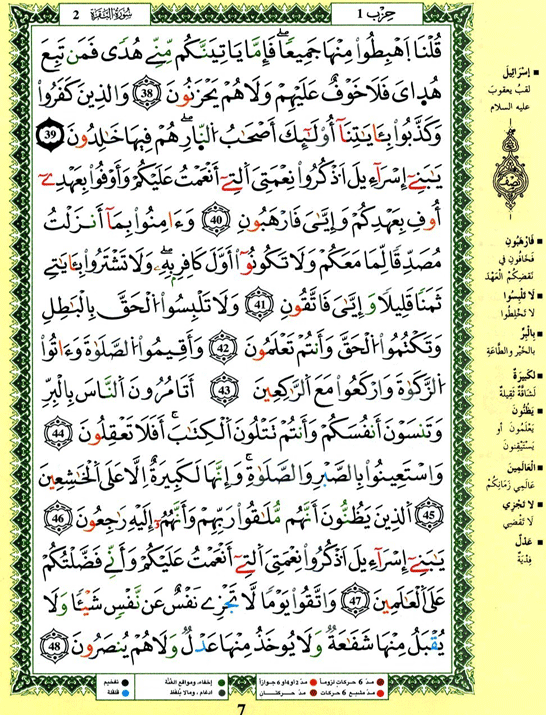 سُورَةُ البَقَرَة 2
حِزْب 1
قُلْنَا اَهْبِطُواْ مِنْهَا جَمِيعاٗ فَإِمَّا يَاتِيَنَّكُم مِّنِّے هُدٗى فَمَن تَبِعَ
هُد۪ايَ فَلَا خَوْفٌ عَلَيْهِمْ وَلَا هُمْ يَحْزَنُونَ 38 وَالذِينَ كَفَرُواْ
وَكَذَّبُواْ بِـَٔايَٰتِنَآ أُوْلَٰٓئِكَ أَصْحَٰبُ النّ۪ارِ هُمْ فِيهَا خَٰلِدُونَ 39
يَٰبَنِےٓ إِسْرَآءِيلَ اَذْكُرُواْ نِعْمَتِيَ اَلتِےٓ أَنْعَمْتُ عَلَيْكُمْ وَأَوْفُواْ بِعَهْدِےٓ
أُوفِ بِعَهْدِكُمْ وَإِيَّٰيَ فَارْهَبُونِ 40 وَءَامِنُواْ بِمَآ أَنزَلْتُ
مُصَدِّقاٗ لِّمَا مَعَكُمْ وَلَا تَكُونُوٓاْ أَوَّلَ كَافِرِۢ بِهِۦ وَلَا تَشْتَرُواْ بِـَٔايَٰتِے
ثَمَناٗ قَلِيلاٗ وَإِيَّٰيَ فَاتَّقُونِ 41 وَلَا تَلْبِسُواْ الْحَقَّ بِالْبَٰطِلِ
وَتَكْتُمُواْ الْحَقَّ وَأَنتُمْ تَعْلَمُونَ 42 وَأَقِيمُواْ الصَّلَوٰةَ وَءَاتُواْ
الزَّكَوٰةَ وَارْكَعُواْ مَعَ الرَّٰكِعِينَ 43 أَتَامُرُونَ اَلنَّاسَ بِالْبِرِّ
وَتَنسَوْنَ أَنفُسَكُمْ وَأَنتُمْ تَتْلُونَ اَلْكِتَٰبَ أَفَلَا تَعْقِلُونَ 44
وَاسْتَعِينُواْ بِالصَّبْرِ وَالصَّلَوٰةِ وَإِنَّهَا لَكَبِيرَةٌ اِلَّا عَلَى اَلْخَٰشِعِينَ
45 اَلذِينَ يَظُنُّونَ أَنَّهُم مُّلَٰقُواْ رَبِّهِمْ وَأَنَّهُمُۥٓ إِلَيْهِ رَٰجِعُونَ 46
يَٰبَنِےٓ إِسْرَآءِيلَ اَذْكُرُواْ نِعْمَتِيَ اَلتِےٓ أَنْعَمْتُ عَلَيْكُمْ وَأَنِّے فَضَّلْتُكُمْ
عَلَى اَلْعَٰلَمِينَ 47 وَاتَّقُواْ يَوْماٗ لَّا تَجْزِے نَفْسٌ عَن نَّفْسٖ شَيْـٔاٗ وَلَا
يُقْبَلُ مِنْهَا شَفَٰعَةٞ وَلَا يُوخَذُ مِنْهَا عَدْلٞ وَلَا هُمْ يُنصَرُونَ 48
إِسْرَآئِيلَ
لقبُ يعقوبَ
عليه السلام
فَارْهَبُونِ
فَخَافُونِ فِي
نَقْضِكُمُ الْعَهْدَ
لَا تَلْبِسُوا
لَا تَخْلِطُوا
بِالْبِرِّ
بالخَيْرِ والطَّاعَةِ
لَكَبِيرَةٌ
لَشَاقَّةٌ ثَقِيلَةٌ
يَظُنُّونَ
يَعْلَمُونَ أو
يَسْتَيْقِنُونَ
الْعَالَمِينَ
عَالَمِي زَمَانِكُمْ
لَا تَجْزِي
لَا تَقْضِي
عَدْلٌ
فِدْيَةٌ
مدّ 6 حركات لزوماً مدّ 2 أو 4 أو 6 جوازاً إخفاء، ومواقع الغُنَّة تفخيم
مدّ مشبع 6 حركات مدّ حركتــان إدغام، وما لا يُلفَظ قلقلة
7